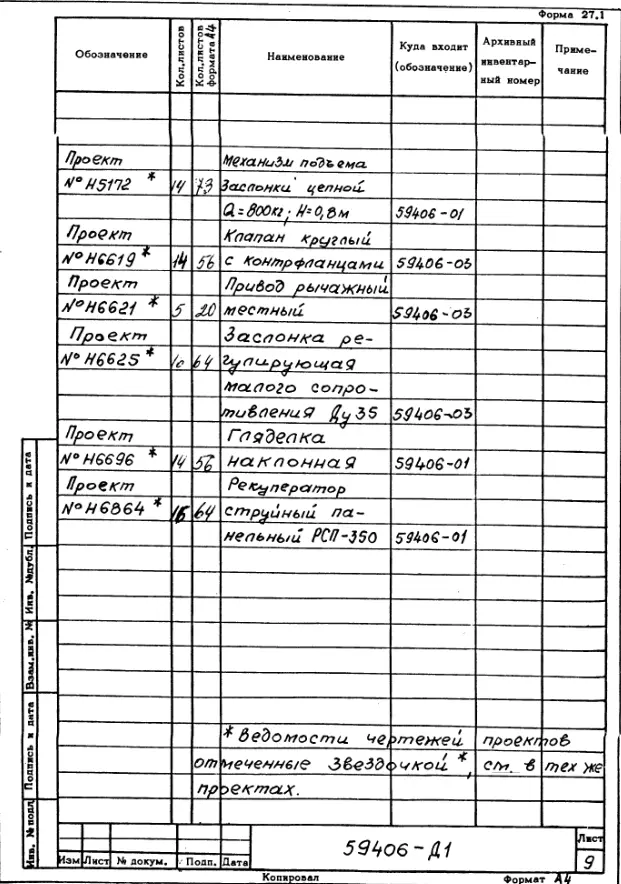 Форма 27.1
Обозначение Кол.листов Кол.листов формата А4 Наименование Куда входит (обозначение) Архивный инвентар- ный номер Приме- чание
Проект Механизм подъема
№ Н5172 * 14 73 Заслонки цепной
Q=800кг; Н=0,8м 59406-01
Проект Клапан круглый
№ Н6619 * 14 56 с контрфланцами 59406-03
Проект Привод рычажный
№ Н6621 * 5 20 местный 59406-03
Проект Заслонка ре-
№ Н6625 * 10 64 гулирующая
малого сопро-
тивления Ду 35 59406-03
Проект Гляделка
№ Н6696 * 14 56 наклонная 59406-01
Проект Рекуператор
№ Н6864 * 16 64 струйный па-
нельный РСП-350 59406-01
* Ведомости чертежей проектов
отмеченные Звездочкой *, см. в тех же
проектах.
Инв. № подл. Подпись и дата Взам.инв. № Инв. №дубл. Подпись и дата
59406-Д1
Лист
9
Изм Лист № докум. Подп. Дата
Копировал Формат А4